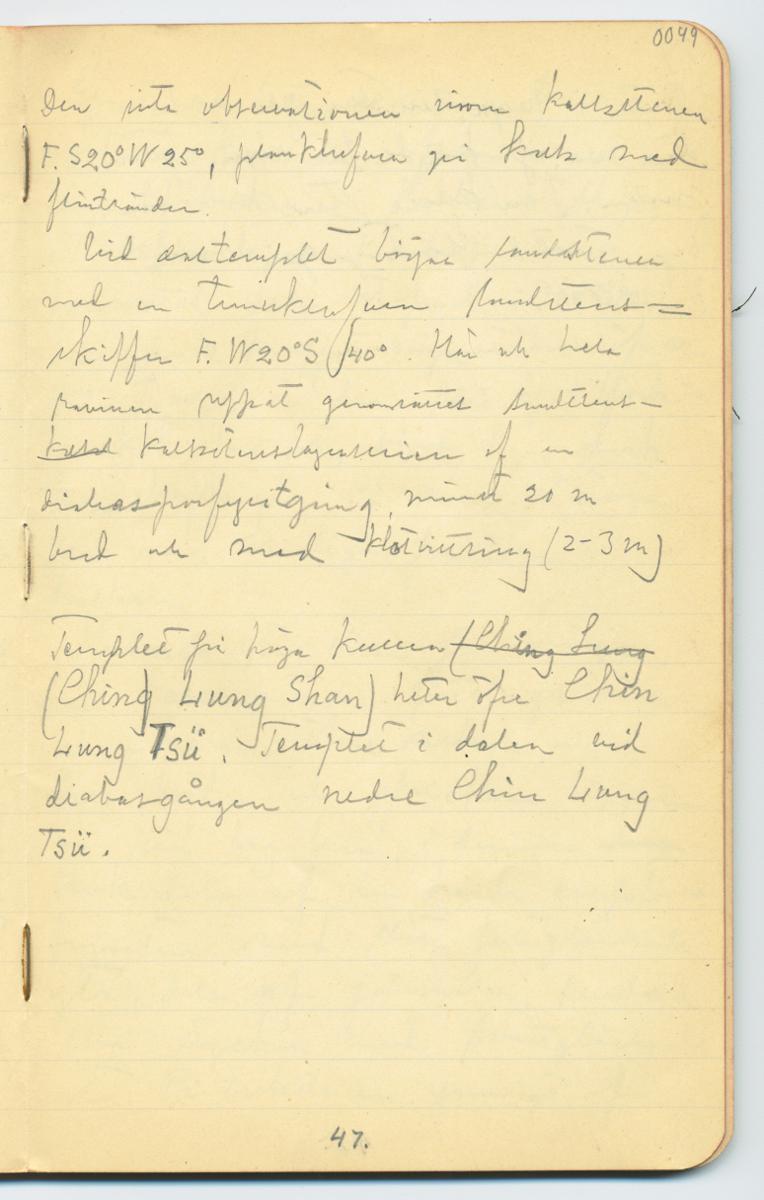 0049
Den sista observationen inom kalkstenen
F. S20°W 25°, plankskifven grå kalk med
flintränder.
Vid daltemplet börjar sandstenen
med en tunnskifven sandstens=
skiffer F. W20°S 40°. Här och hela
ravinen uppåt genomsättes sandstens-
kalkstenslagserien af en
diabasporfyritgång, minst 20 m
bred och med klotvittring (2-3 m)
Templet på höga kullen (Ching Lung
(Ching Lung Shan) heter öfre Chin
Lung Tsü. Templet i dalen vid
diabasgången nedre Chin Lung
Tsü.
47.